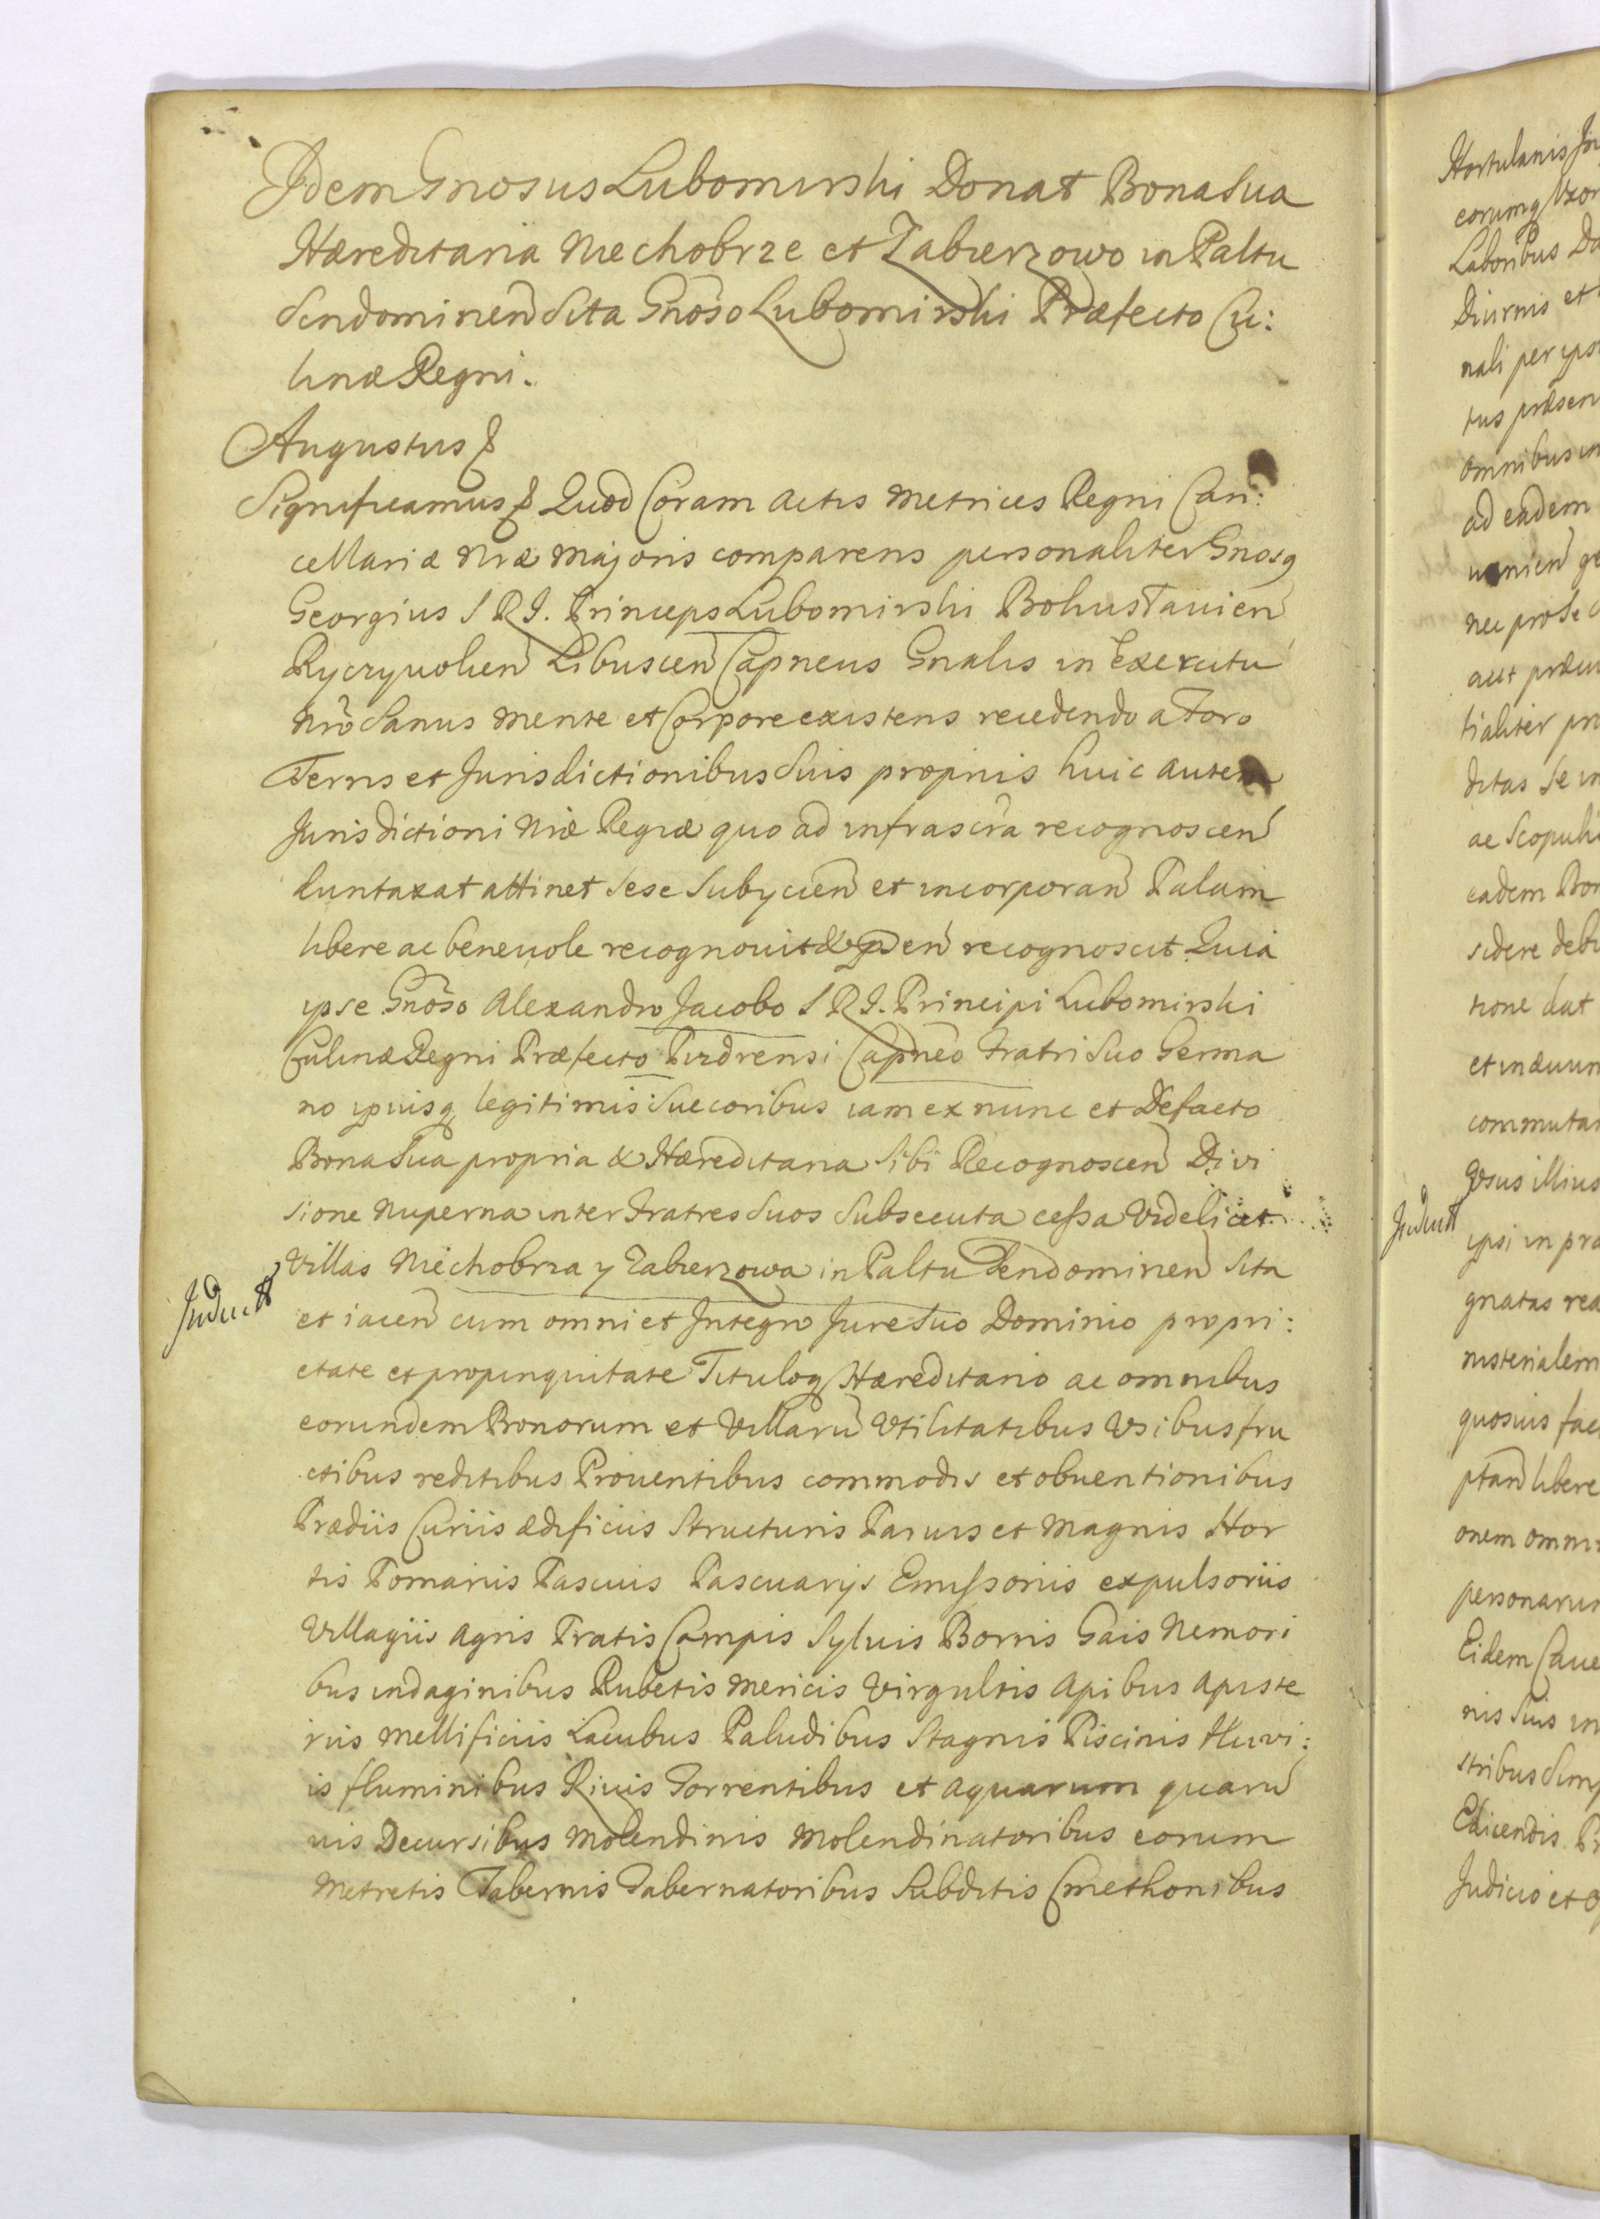 Idem Gnosus Lubomirski Donat Bona Sua
Hæreditaria Niechobrze et Zabierzowo in Paltu
Sendominen̄ Sita Gnōso Lubomirski Præfecto Cu:
linæ Regni.
Augustus &
Significamus & Quod Coram Actis Metrices Regni Can:
cellariæ Nræ Majoris comparens personaliter Gnosq
Georgius S R I. Princeps Lubomirski Bohuslauien̄
Ryczyuolien̄ Libuscen̄ Capneus Gnalis in Exercitu
Nrō Sanus Mente et Corpore existens recedendo a Foro
Terris et Jurisdictionibus Suis propriis huic autem
Jurisdictioni Nræ Regiæ quo ad infrascra recognoscen̄
duntaxat attinet Sese Subycien̄ et incorporan̄ Palam
libere ac beneuole recognouit & pden̄ recognoscit Quia
ipse Gnōso Alexandro Jacobo S R I. Principi Lubomirski
Culinæ Regni Præfecto Pirdrensi Capneo Fratri Suo Germa
no ipiusq legitimis Succoribus iam ex nunc et Defacto
Bona Sua propria & Hæreditaria Sibi Recognoscen̄ Divi
sione Nuperna inter Fratres Suos Subsecuta cessa Videlicet
Villas Niechobrza y Zabierzowa in Paltu Sendominen̄ Sita
Induct
et iacen̄ cum omni et Integro Jure Suo Dominio propri:
etate et propinquitate Tituloq Hæreditario ac omnibus
eorundem Bonorum et Villarū Utilitatibus Usibus fru
ctibus reditibus Prouentibus commodis et obuentionibus
Prædiis Curiis ædificiis Structuris Paruis et Magnis Hor
tis Pomariis Pascuis Pascuarys Emissoriis expulsoriis
Villagiis Agris Pratis Campis Syluis Borris Gais Nemori
bus indaginibus Rubetis Mericis Virgultis Apibus Apiste
riis Mellificiis Lacubus Paludibus Stagnis Piscinis Fluvi:
is fluminibus Rivis Torrentibus et aquarum quarū
uis Decursibus Molendinis Molendinatoribus eorum
Metretis Tabernis Tabernatoribus Subditis Cmethonibus
Hortulanis
eorumq Uxor
Laboribus Da
Diurnis et
nali per ips
tus præsen
omnibus in
ad eadem
nec pro Se
aut præu
tialiter pr
ditas Se in
ac Scopuli
eadem Bon
sidere deb
tione dat
et inæuum
commuta
Uesus illius
Induct
ipsi in pra
gnatas rea
nisterialem
quosuis fac
ptan̄ libere
onem omni
personarum
Eidem Caue
riis Suis in
stribus Simp
Edicendis Pr
Judicio et